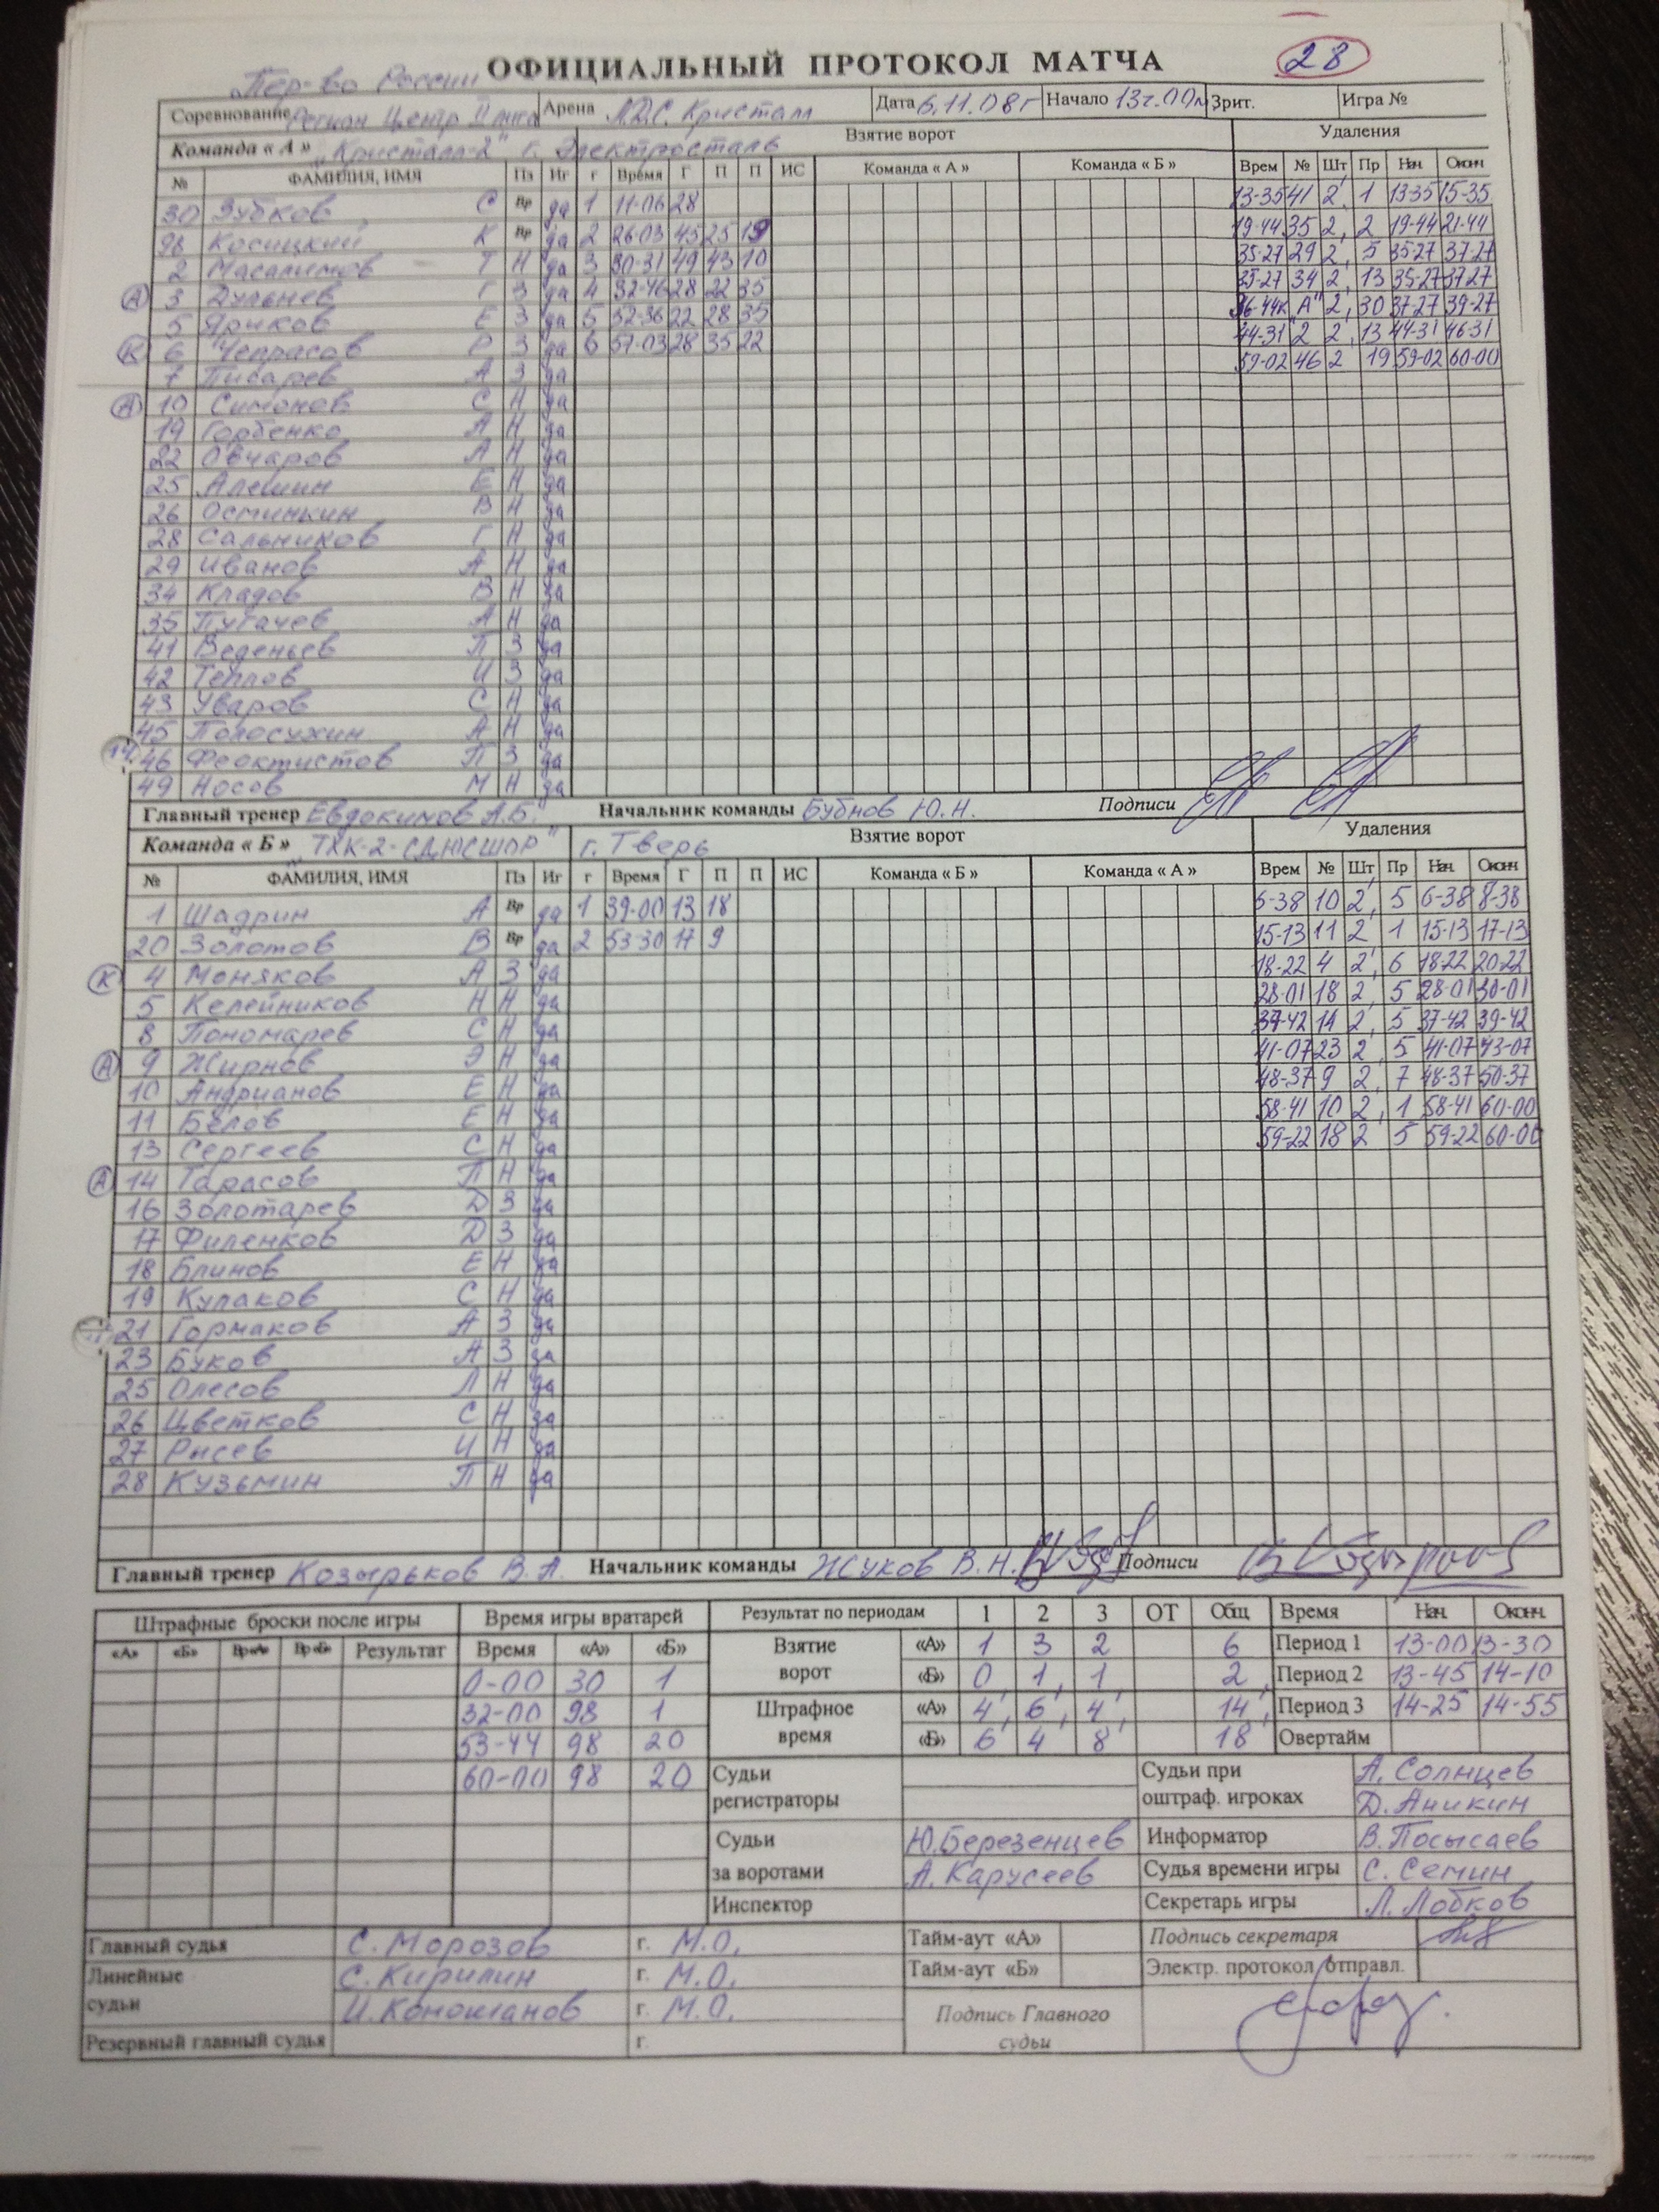 28
ОФИЦИАЛЬНЫЙ ПРОТОКОЛ МАТЧА
"Пер-во России
Соревнование Регион Центр II лига Арена Л.Д.С. Кристалл Дата 6.11.08г Начало 13ч.00м Зрит. Игра №
Команда « А » "Кристалл-2" г. Электросталь Взятие ворот Удаления
№ ФАМИЛИЯ, ИМЯ Пз Иг г Время Г П П ИС Команда « А » Команда « Б » Врем № Шт Пр Нач. Оконч.
30 Зубков С Вр да 1 11-06 28 13-35 41 2' 1 13-35 15-35
98 Косицкий К Вр да 2 26-03 45 25 19 19-44 35 2' 2 19-44 21-44
2 Масалимов Т Н да 3 30-31 49 43 10 35-27 29 2' 5 35-27 37-27
А 3 Дульнев Г З да 4 32-46 28 22 35 35-27 34 2' 13 35-27 37-27
5 Яриков Е З да 5 52-36 22 28 35 36-44 К"А" 2' 30 37-27 39-27
К 6 Чепрасов Р З да 6 57-03 28 35 22 44-31 2 2' 13 44-31 46-31
7 Писарев А З да 59-02 46 2 19 59-02 60-00
А 10 Симонов С Н да
19 Горбенко А Н да
22 Овчаров А Н да
25 Алешин Е Н да
26 Остинкин В Н да
28 Сальников Г Н да
29 Иванов А Н да
34 Кладов В Н да
35 Пугачев А Н да
41 Веденьев П З да
42 Теплов И З да
43 Уваров С Н да
45 Полосухин А Н да
46 Феоктистов П З да
49 Носов М Н да
Главный тренер Евдокимов А.Б. Начальник команды Бубнов Ю.Н. Подписи
Команда « Б » "ТХК-2-СДЮСШОР" г. Тверь Взятие ворот Удаления
№ ФАМИЛИЯ, ИМЯ Пз Иг г Время Г П П ИС Команда « Б » Команда « А » Врем № Шт Пр Нач. Оконч.
1 Шадрин А Вр да 1 39-00 13 18 6-38 10 2' 5 6-38 8-38
20 Золотов В Вр да 2 53-30 17 9 15-13 11 2 1 15-13 17-13
К 4 Моняков А З да 18-22 4 2' 6 18-22 20-22
5 Келейников Н Н да 28-01 18 2' 5 28-01 30-01
8 Пономарев С Н да 37-42 14 2' 5 37-42 39-42
А 9 Жирнов Э Н да 41-07 23 2' 5 41-07 43-07
10 Андрианов Е Н да 48-37 9 2' 7 48-37 50-37
11 Белов Е Н да 58-41 10 2' 1 58-41 60-00
13 Сергеев С Н да 59-22 18 2 5 59-22 60-00
А 14 Тарасов П Н да
16 Золотарев Д З да
17 Филенков Д З да
18 Блинов Е Н да
19 Кулаков С Н да
21 Гормаков А З да
23 Буков А З да
25 Олесов Л Н да
26 Цветков С Н да
27 Рысев И Н да
28 Кузьмин П Н да
Главный тренер Козырьков В.А. Начальник команды Жуков В.Н. Подписи
Штрафные броски после игры Время игры вратарей Результат по периодам 1 2 3 ОТ Общ Время Нач. Оконч.
«А» «Б» Вр«А» Вр«Б» Результат Время «А» «Б» Взятие ворот «А» 1 3 2 6 Период 1 13-00 13-30
0-00 30 1 «Б» 0 1 1 2 Период 2 13-45 14-10
32-00 98 1 Штрафное время «А» 4' 6' 4' 14' Период 3 14-25 14-55
53-44 98 20 «Б» 6' 4' 8' 18' Овертайм
60-00 98 20 Судьи регистраторы Судьи при оштраф. игроках А. Солнцев
Д. Аникин
Судьи за воротами Ю.Березенцев Информатор В.Посысаев
А. Карусеев Судья времени игры С. Семин
Инспектор Секретарь игры Л. Лобков
Главный судья С. Морозов г. М.О. Тайм-аут «А» Подпись секретаря
Линейные судьи С. Кирилин г. М.О. Тайм-аут «Б» Электр. протокол отправл.
И. Коношанов г. М.О. Подпись Главного судьи
Резервный главный судья г.